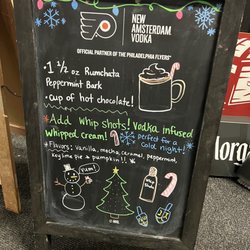 NEW
AMSTERDAM
VODKA
OFFICIAL PARTNER OF THE PHILADELPHIA FLYERS
• 1 1/2 oz Rumchata
Peppermint Bark
• Cup of hot chocolate!
* Add Whip Shots! Vodka infused
Whipped cream!
perfect for a
Cold night!
* Flavors: Vanilla, mocha, caramel, peppermint,
Key lime pie & pumpkin!!
Yum!